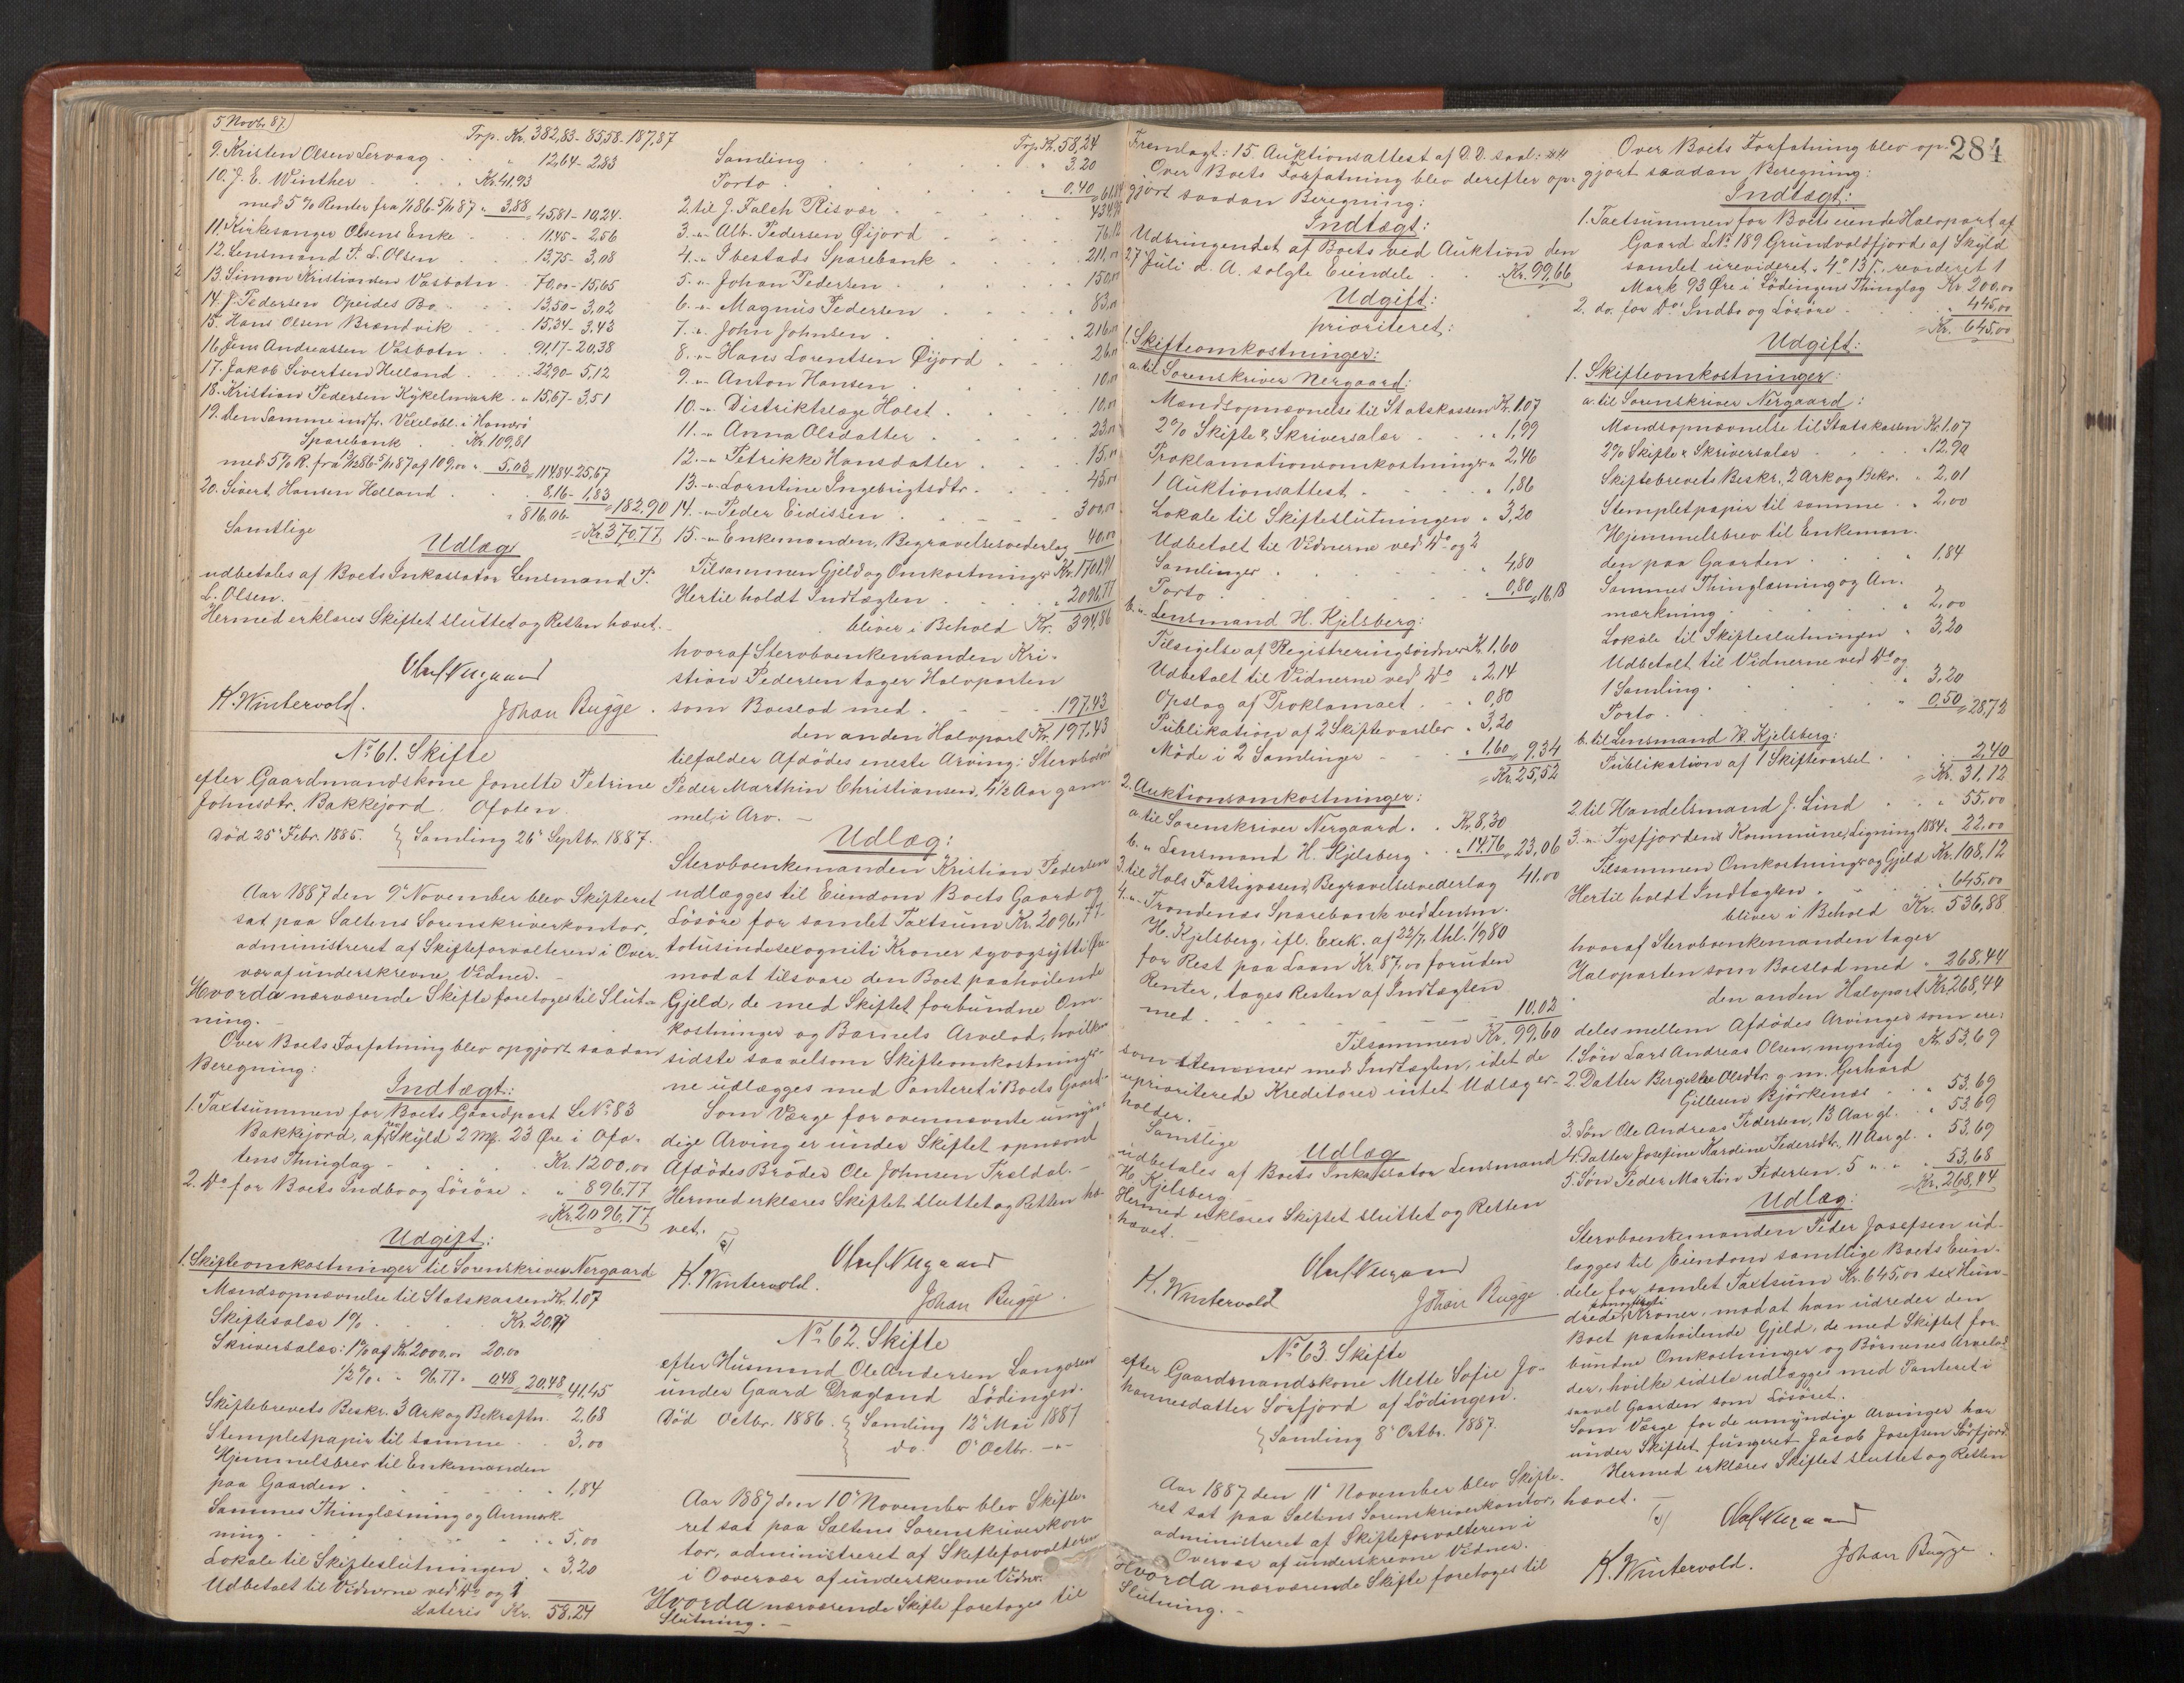 5 Novb. 87.)
Trp. Kr. 382,83 - 85,58 - 187,87
9. Kristen Olsen Lervaag . . „ 12,64 - 2,83
10. J. E. Winther . . Kr. 41,93
med 5 % Renter fra 1/1 86 - 5/11 87 „ 3,88 = 45,81 - 10,24.
11. Kirkesanger Olsens Enke . . 11,45 - 2,56
12. Lensmand P. L. Olsen . . 13,75 - 3,08
13. Simon Kristiansen Vasbotn . 70,00 - 15,65
14. J. Pedersen Opeides Bo . . 13,50 - 3,02
15. Hans Olsen Brandvik . . 15,34 - 3,43
16. Jens Andreassen Vasbotn . . 91,17 - 20,38
17. Jakob Sivertsen Helland . . 22,90 - 5,12
18. Kristian Pedersen Kykelnvark . „ 15,67 - 3,51
19. Den Samme indfr. Vexelobl. i Hamarø
Sparebank . . Kr. 109,81
med 5 % R. fra 13/12 86 - 5/11 87 af 109,00 „ 5,03 = 114,84 - 25,67
20. Sivert Hansen Helland . . 8,16 - 1,83
„ 816,06 = 182,90
Samtlige = Kr. 370,77
Udlæg
udbetales af Boets Inkassator Lensmand P.
L. Olsen.
Hermed erklæres Skiftet sluttet og Retten hævet. –
Olaf Nergaard
K. Wintervold. Johan Bugge.
No 61. Skifte
efter Gaardmandskone Jonette Petrine
Johnsdtr. Bakkejord Ofoten.
Død 25' Febr. 1885. } Samling 26' Septbr. 1887.
Aar 1887 den 9' November blev Skifteret
sat paa Saltens Sorenskriverkontor,
administreret af Skifteforvalteren i Over-
vær af underskrevne Vidner. –
Hvorda nærværende Skifte foretoges til Slut-
ning. –
Over Boets Forfatning blev opgjort saadan
Beregning:
Indtægt:
1. Taxtsummen for Boets Gaardpart L.No 83
Bakkejord, af rev. Skyld 2 Mk. 23 Øre i Ofo-
tens Thinglag - . . Kr. 1200,00
2. Do for Boets Indbo og Løsøre . „ 896,77
= Kr. 2096,77
Udgift:
1. Skifteomkostninger til Sorenskriver Nergaard
Mandsopnævnelse til Statskassen Kr. 1,07
Skiftesalær 1 % . . Kr. 20,97
Skriversalær: 1 % af Kr. 2000,00 20,00
1/2 % „ „ 96.77 „ 0,48 = 20,48 = 41,45
Skiftebrevets Beskr. 3 Ark og Bekræftn. 2,68
Stempletpapir til samme . . 3,00
Hjemmelsbrev til Enkemanden
paa Gaarden . . 1,84
Sammes Thinglæsning og Anmærk-
ning . . „ 5,00
Lokale til Skifteslutningen . „ 3,20
Udbetalt til Vidnerne ved Do og 1
Lateris Kr. 58,24
Trp. Kr. 58,24
Samling . . „ 3,20
Porto . . „ 0,40 = 61,84
2. til J. Falch Risvær . . 434,97
3. „ Alb. Pedersen Øijord . . 76,12
4. „ Ibestads Sparebank . . 211,00
5. „ Johan Pedersen . . 150,00
6. „ Magnus Pedersen . . 83,00
7. „ John Johnsen . . 216,00
8. „ Hans Lorentsen Øijord . . 26,00
9. „ Anton Hansen . . 10,00
10. „ Distriktslæge Holst . . 10,00
11. „ Anna Olsdatter . . 23,00
12. „ Petrikke Hansdatter . . 15,00
13. „ Lorntine Ingebrigtsdtr. . . 45,00
14. „ Peder Eidissen . . 300,00
15. „ Enkemanden, Begravelsesvederlag 40,00
Tilsammen Gjeld og Omkostninger Kr. 1701,91
Hertil holdt Indtægten . . „ 2096,77
bliver i Behold Kr. 394,86
hvoraf Stervboenkemanden Kri-
stian Pedersen tager Halvparten
som Boeslod med . - - - 197,43
den anden Halvpart Kr. 197,43
tilfalder Afdødes eneste Arving: Stervbosøn
Peder Marthin Christiansen, 4 1/2 Aar gam-
mel, i Arv. –
Udlæg:
Stervboenkemanden Kristian Pedersen
udlægges til Eiendom Boets Gaard og
Løsøre for samlet Taxtsum Kr. 2096,77 -
totusindesexogniti Kroner syvogsytti Øre
mod at tilsvare den Boet paahvilende
Gjeld, de med Skiftet forbundne Om-
kostninger og Barnets Arvelod, hvilken
sidste saavelsom Skifteomkostninger-
ne udlægges med Panteret i Boets Gaard-
Som Værge for ovennævnte umyn-
dige Arving er under Skiftet opnævnt
Afdødes Broder Ole Johnsen Traldal. –
Hermed erklæres Skiftet sluttet og Retten hæ-
vet.
Olaf Nergaard
K. Wintervold. Johan Bugge.
No 62. Skifte
efter Husmand Ole Andersen Langaasen
under Gaard Dragland Lødingen.
Død Octbr. 1886. } Samling 12' Mai 1887
do. 0' Octbr. –„–
Aar 1887 den 10' November blev Skifte-
ret sat paa Saltens Sorenskriverkon-
tor, administreret af Skifteforvalteren
i Overvær af underskrevne Vidner.
Hvorda nærværende Skifte foretoges til
Slutning. –
Fremlagt: 15. Auktionsattest af D.D. saal:
Over Boets Forfatning blev derefter op-
gjort saadan Beregning:
Indtægt:
Udbringendet af Boets ved Auktion den
27 Juli d. A. solgte Eiendele . . Kr. 99,66
Udgift:
prioriteret:
1. Skifteomkostninger:
a. til Sorenskriver Nergaard:
Mandsopnævnelse til Statskassen Kr. 1.07
2 % Skifte & Skriversalær . . „ 1,99
Proklamationsomkostninger „ 2,46
1 Auktionsattest . . „ 1,86
Lokale til Skifteslutningen „ 3,20
Udbetalt til Vidnerne ved Do og 2
Samlinger . . „ 4,80
Porto . . „ 0,80 = 16,18
b. „ Lensmand H. Kjelsberg:
Tilsigelse af Registreringsvidner Kr. 1,60
Udbetalt til Vidnerne ved Do „ 2,14
Opslag af Proklamaet . - „ 0,80
Publikation af 2 Skiftevarsler „ 3,20
Møde i 2 Samlinger - - „ 1,60 = 9,34
= Kr. 25,52
2. Auktionsomkostninger:
a. til Sorenskriver Nergaard . . Kr. 8,30
b. „ Lensmand H. Kjelsberg . . „ 14,76 = 23,06
3. til Hols Fattigvæsen, Begravelsesvederlag 41.00
4. „ Trondenæs Sparebank ved Lensm.
H. Kjelsberg, ifl. Exek. af 22/7, thl. 1/9 80
for Rest paa Laan Kr. 87,00 foruden
Renter, tages Resten af Indtægten
med . . 10,02
Tilsammen Kr. 99,60
som stemmer med Indtægten, idet de
uprioriterede Kreditorer intet Udlæg er-
holder.
Udlæg
Samtlige
udbetales af Boets Inkassator Lensmand
H. Kjelsberg. –
Hermed erklæres Skiftet sluttet og Retten
hævet. –
Olaf Nergaard
K. Wintervold Johan Bugge
No 63. Skifte
efter Gaardmandskone Mette Sofie Jo-
hannesdatter Sørfjord af Lødingen.
} Samling 8' Octbr. 1887.
Aar 1887 den 11' November blev Skifte-
ret sat paa Saltens Sorenskriverkontor,
administreret af Skifteforvalteren i
Overvær af underskrevne Vidner.
Hvorda nærværende Skifte foretoges til
Slutning. –
284
Over Boets Forfatning blev op-
gjort saadan Beregning:
Indtægt:
1. Taxtsummen for Boets eiende Halvpart af
Gaard L.No 189 Grundvoldfjord af Skyld
samlet urevideret . 4 13, revideret 1
Mark 93 Øre i Lødingens Thinglag Kr. 200,00
2. do. for Do Indbo og Løsøre . . „ 445,00
= Kr. 645,00
Udgift:
1. Skifteomkostninger:
a. til Sorenskriver Nergaard:
Mandsopnævnelse til Statskassen Kr. 1.07
2 % Skifte & Skriversalær . . „ 12.90
Skiftebrevets Beskr. 2 Ark og Bekr. „ 2,01
Stempletpapir til samme . . „ 2,00
Hjemmelsbrev til Enkeman-
den paa Gaarden . . „ 1,84
Sammes Thinglæsning og An-
mærkning . . „ 2,00
Lokale til Skifteslutningen „ 3,20
Udbetalt til Vidnerne ved Do og
1 Samling . . „ 3,20
Porto . . „ 0,50 = 28,72
b. til Lensmand H. Kjelsberg:
Publikation af 1 Skiftevarsel . . 2,40
= Kr. 31,12
2. til Handelsmand J. Lind . . „ 55,00
3. „ Tysfjordens Kommune, Ligning 1884 „ 22,00
Tilsammen Omkostninger og Gjeld Kr. 108,12
Hertil holdt Indtægten . . „ 645,00
bliver i Behold Kr. 536,88
hvoraf Stervboenkemanden tager
Halvparten som Boeslod med „ 268,44
den anden Halvpart Kr. 268,44
deles mellem Afdødes Arvinger som ere:
1. Søn Lars Andreas Olsen, myndig Kr. 53,69
2. Datter Bergitte Olsdtr. g. m. Gerhard
Gillesen Bjørkenæs . . „ 53,69
3. Søn Ole Andreas Pedersen, 13 Aar gl. . „ 53,69
4. Datter Josefine Karoline Pedersdtr. 11 Aar gl. . „ 53,69
5. Søn Peder Martin Pedersen, 5 „ „ „ 53,68
= Kr. 268,44
Udlæg:
Stervboenkemanden Peder Josefsen ud-
lægges til Eiendom samtlige Boets Eien-
dele for samlet Taxtsum Kr. 645,00 sex Hun-
drede femogfirti Kroner, mod at han udreder den
Boet paahvilende Gjeld, de med Skiftet for-
bundne Omkostninger og Børnenes Arvelod-
der, hvilke sidste udlægges med Panteret i
saavel Gaarden som Løsøret.
Som Værge for de umyndige Arvinger har
under Skiftet fungeret Jacob Josefsen Sørfjord.
Hermed erklæres Skiftet sluttet og Retten
hævet. –
Olaf Nergaard
K. Wintervold. Johan Bugge.